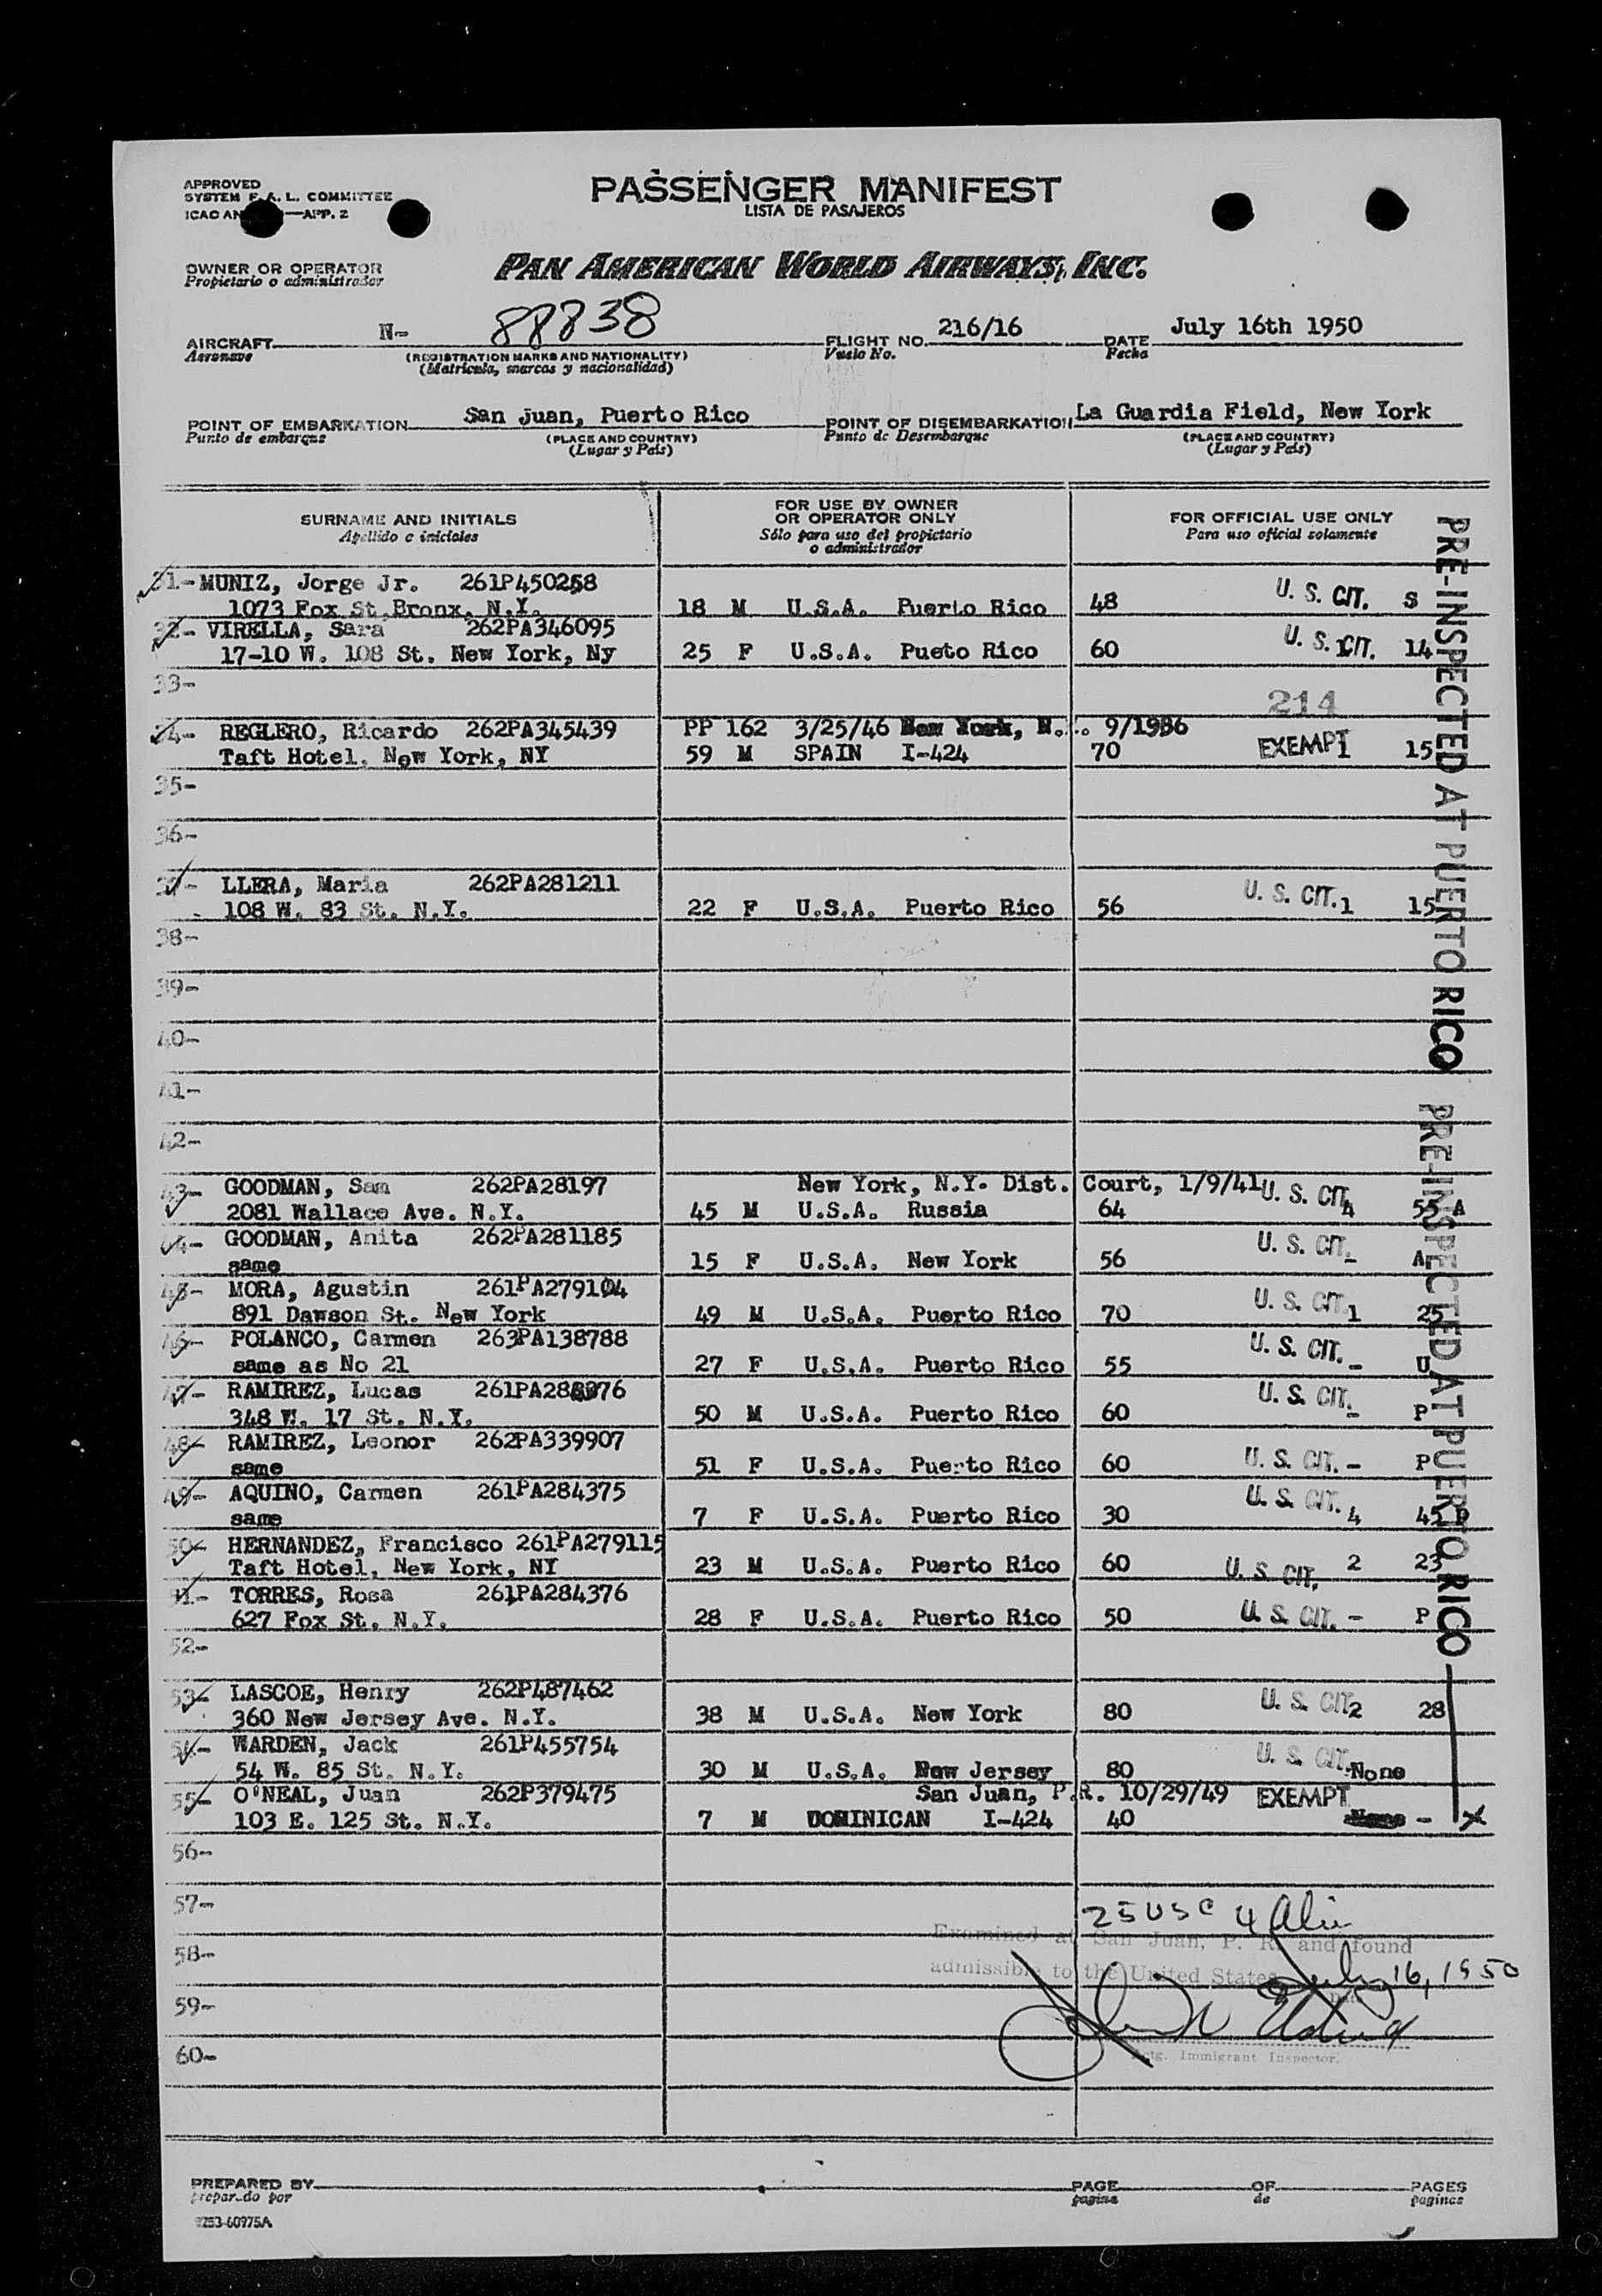 APPROVED
SYSTEM F.A.L. COMMITTEE
ICAO AN —APP. 2
PASSENGER MANIFEST
LISTA DE PASAJEROS
OWNER OR OPERATOR
Propietario o administrador
PAN AMERICAN WORLD AIRWAYS, INC.
AIRCRAFT N- 88838 FLIGHT NO. 216/16 DATE July 16th 1950
Aeronave (REGISTRATION MARKS AND NATIONALITY) Vuelo No. Fecha
(Matricula, marcas y nacionalidad)
POINT OF EMBARKATION San Juan, Puerto Rico POINT OF DISEMBARKATION La Guardia Field, New York
Punto de embarque (PLACE AND COUNTRY) Punto de Desembarque (PLACE AND COUNTRY)
(Lugar y País) (Lugar y País)
SURNAME AND INITIALS
Apellido e iniciales
FOR USE BY OWNER
OR OPERATOR ONLY
Sólo para uso del propietario
o administrador
FOR OFFICIAL USE ONLY
Para uso oficial solamente
31- MUNIZ, Jorge Jr. 261P450258
1073 Fox St. Bronx, N.Y. 18 M U.S.A. Puerto Rico 48 U. S. CIT. S
32- VIRELLA, Sara 262PA346095
17-10 W. 108 St. New York, Ny 25 F U.S.A. Pueto Rico 60 U. S. CIT. 1 14
33-
214
34- REGLERO, Ricardo 262PA345439 PP 162 3/25/46 New York, N. . 9/1986
Taft Hotel, New York, NY 59 M SPAIN I-424 70 EXEMPT 1 15
35-
36-
37- LLERA, Maria 262PA281211
108 W. 83 St. N.Y. 22 F U.S.A. Puerto Rico 56 U. S. CIT. 1 15
38-
39-
40-
41-
42-
43- GOODMAN, Sam 262PA28197 New York, N.Y. Dist. Court, 1/9/41 U. S. CIT.
2081 Wallace Ave. N.Y. 45 M U.S.A. Russia 64 4 55 A
44- GOODMAN, Anita 262PA281185
same 15 F U.S.A. New York 56 U. S. CIT. - A
45- MORA, Agustin 261PA279104
891 Dawson St. New York 49 M U.S.A. Puerto Rico 70 U. S. CIT. 1 25
46- POLANCO, Carmen 263PA138788
same as No 21 27 F U.S.A. Puerto Rico 55 U. S. CIT. - U
47- RAMIREZ, Lucas
348 W. 17 St. N.Y. 50 M U.S.A. Puerto Rico 60 U. S. CIT. - P
48- RAMIREZ, Leonor 262PA339907
same 51 F U.S.A. Puerto Rico 60 U. S. CIT. - P
49- AQUINO, Carmen 261PA284375
same 7 F U.S.A. Puerto Rico 30 U. S. CIT. 4 45 P
50- HERNANDEZ, Francisco 261PA279115
Taft Hotel, New York, NY 23 M U.S.A. Puerto Rico 60 U. S. CIT. 2 23
51- TORRES, Rosa 261PA284376
627 Fox St. N.Y. 28 F U.S.A. Puerto Rico 50 U. S. CIT. - P
52-
53- LASCOE, Henry 262P487462
360 New Jersey Ave. N.Y. 38 M U.S.A. New York 80 U. S. CIT. 2 28
54- WARDEN, Jack 261P455754
54 W. 85 St. N.Y. 30 M U.S.A. New Jersey 80 U. S. CIT. None
55- O'NEAL, Juan 262P379475 San Juan, P.R. 10/29/49 EXEMPT
103 E. 125 St. N.Y. 7 M DOMINICAN I-424 40 - X
PRE-INSPECTED AT PUERTO RICO
PRE-INSPECTED AT PUERTO RICO
56-
57-
25 USC 4 Alien
Examined at San Juan, P. R. and found
58-
admissible to the United States July 16, 1950
Date
59-
Actg. Immigrant Inspector.
60-
PREPARED BY PAGE OF PAGES
preparado por pagina de paginas
9253-60975A